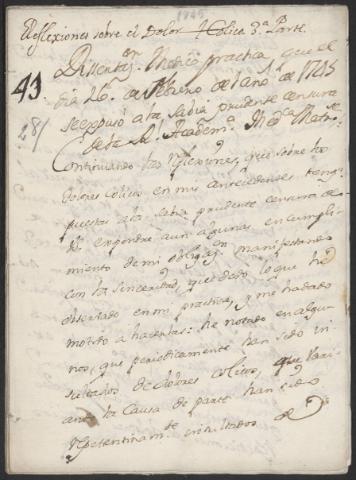 1745
Reflexiones sobre el Dolor Colico 3.ª Parte.
Dissertⁿ. Medico practica que el
43
dia 26. de Febrero de 1 añº. de 1745
se expuso a la sabia prudente censura
28
de la Rˡ. Academª. Medᶜᵃ. Matrⁿ.
Continuando las reflexiones, que sobre los
dolores colicos en mis antecedentes tengo
puestos a la sabia prudente censura de
expondre aun algunas en cumpli-
miento de mi obligaⁿ. manifestando
con la sinceridad, que devo lo que he
observado en mi practica, y me ha dado
motivo a hacerlas: he notado en algu-
nos, que periodicamente han sido in-
sultados de dolores colicos, que vari-
ando la causa de parte han sido
repentinamᵗᵉ. insultados de